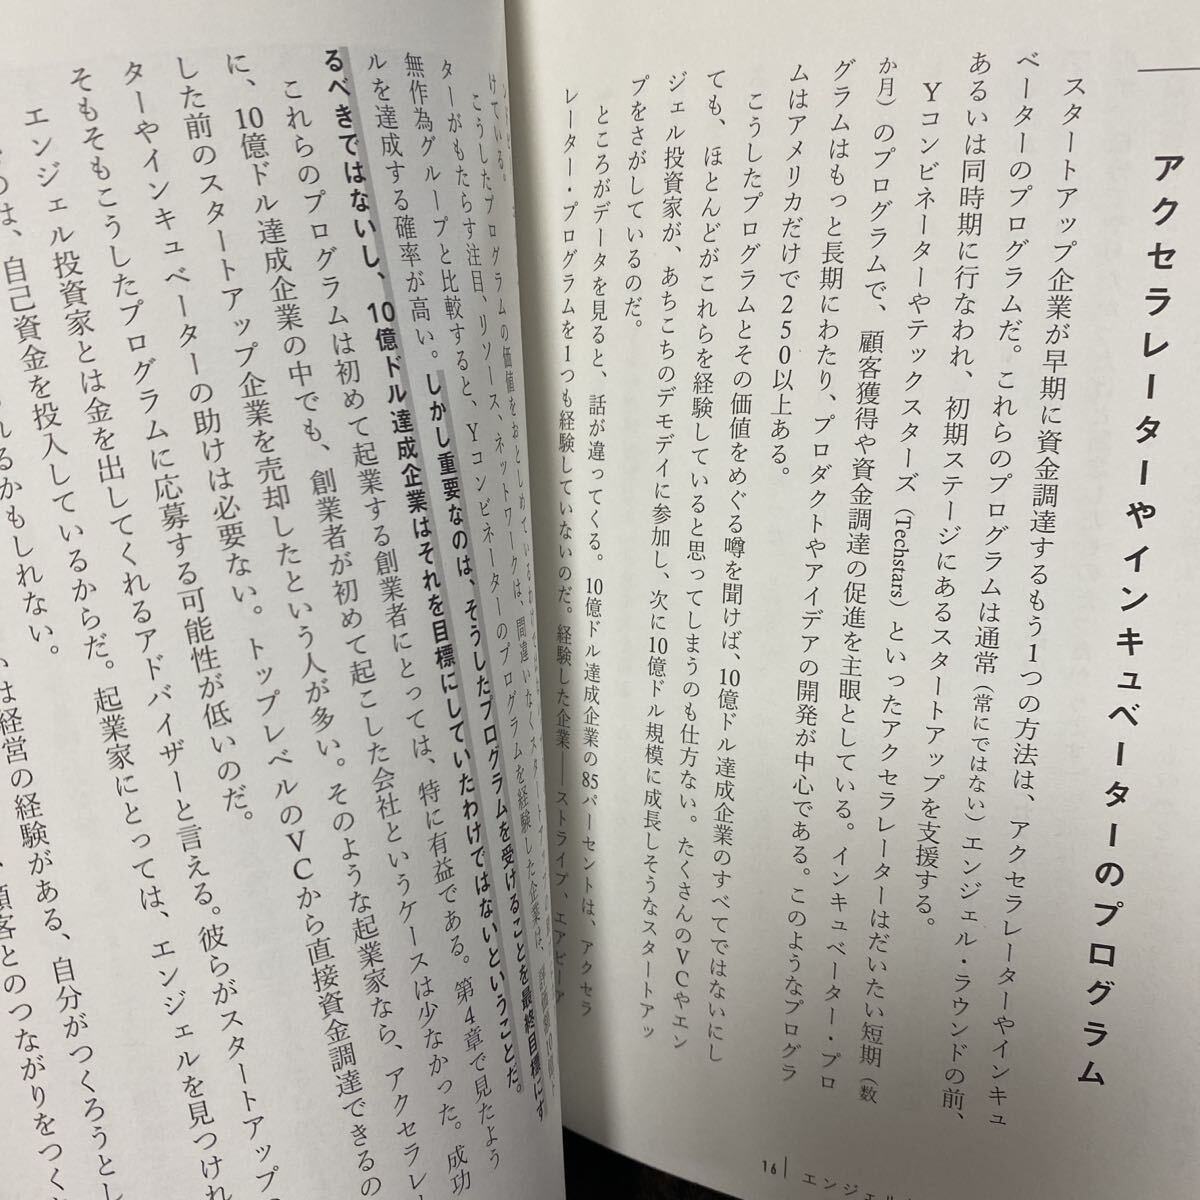 アクセラレーターやインキュベーターのプログラム
スタートアップ企業が早期に資金調達するもう1つの方法は、アクセラレーターやインキュ
ベーターのプログラムだ。これらのプログラムは通常（常にではない）エンジェル・ラウンドの前、
あるいは同時期に行なわれ、初期ステージにあるスタートアップを支援する。
Yコンビネーターやテックスターズ（Techstars）といったアクセラレーターはだいたい短期（数
か月）のプログラムで、顧客獲得や資金調達の促進を主眼としている。インキュベーター・プロ
グラムはもっと長期にわたり、プロダクトやアイデアの開発が中心である。このようなプログラ
ムはアメリカだけで250以上ある。
こうしたプログラムとその価値をめぐる噂を聞けば、10億ドル達成企業のすべてではないにし
ても、ほとんどがこれらを経験していると思ってしまうのも仕方ない。たくさんのVCやエン
ジェル投資家が、あちこちのデモデイに参加し、次に10億ドル規模に成長しそうなスタートアッ
プをさがしているのだ。
ところがデータを見ると、話が違ってくる。10億ドル達成企業の85パーセントは、アクセラ
レーター・プログラムを1つも経験していないのだ。経験した企業——ストライプ、エアビーア
16
エンジェル
プログラムの価値をおとしめているわけでは
けている。
こうしたプログラムのリソース、ネットワークは、間違いなくスタートアップの
ターがもたらす注目、
無作為グループと比較すると、Yコンビネーターのプログラムを経験した企業は、
ルを達成する確率が高い。しかし重要なのは、そうしたプログラムを受けることを最終目標にす
るべきではないし、10億ドル達成企業はそれを目標にしていたわけではないということだ。
これらのプログラムは初めて起業する創業者にとっては、特に有益である。第4章で見たよう
に、10億ドル達成企業の中でも、創業者が初めて起こした会社というケースは少なかった。成功
した前のスタートアップ企業を売却したという人が多い。そのような起業家なら、アクセラレ
ターやインキュベーターの助けは必要ない。トップレベルのVCから直接資金調達できるの
そもそもこうしたプログラムに応募する可能性が低いのだ。
エンジェル投資家とは金を出してくれるアドバイザーと言える。彼らがスタートアップの
のは、自己資金を投入しているからだ。起業家にとっては、エンジェルを見つけれ
れるかもしれない。
は経営の経験がある、自分がつくろうとし
顧客とのつながりをつく